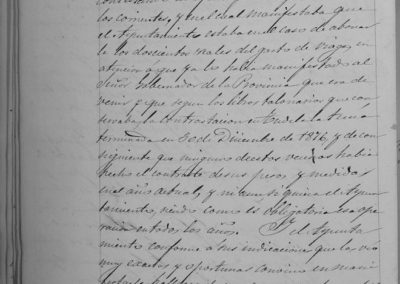 los corrientes, y en el cual manifestaba que
el Ayuntamiento estaba en el caso de abonar
le los doscientos reales del gasto de viaje, en
atencion á que ya les habia manifestado al
Señor Gobernador de la Provincia que era de
venir y que segun los libros talonarios que con
servaba la contrastacion en Tudela tenia
terminada en 30 de Diciembre de 1876, y de con
siguiente que ninguno de estos vecinos habia
hecho el contraste de sus pesos y medidas
en el año actual, y ni aun siquiera el Ayun
tamiento, siendo como es obligatoria esa ope
racion todos los años. Y el Ayunta
miento conforme a sus indicaciones que las vio
muy exactas y oportunas convino en mani